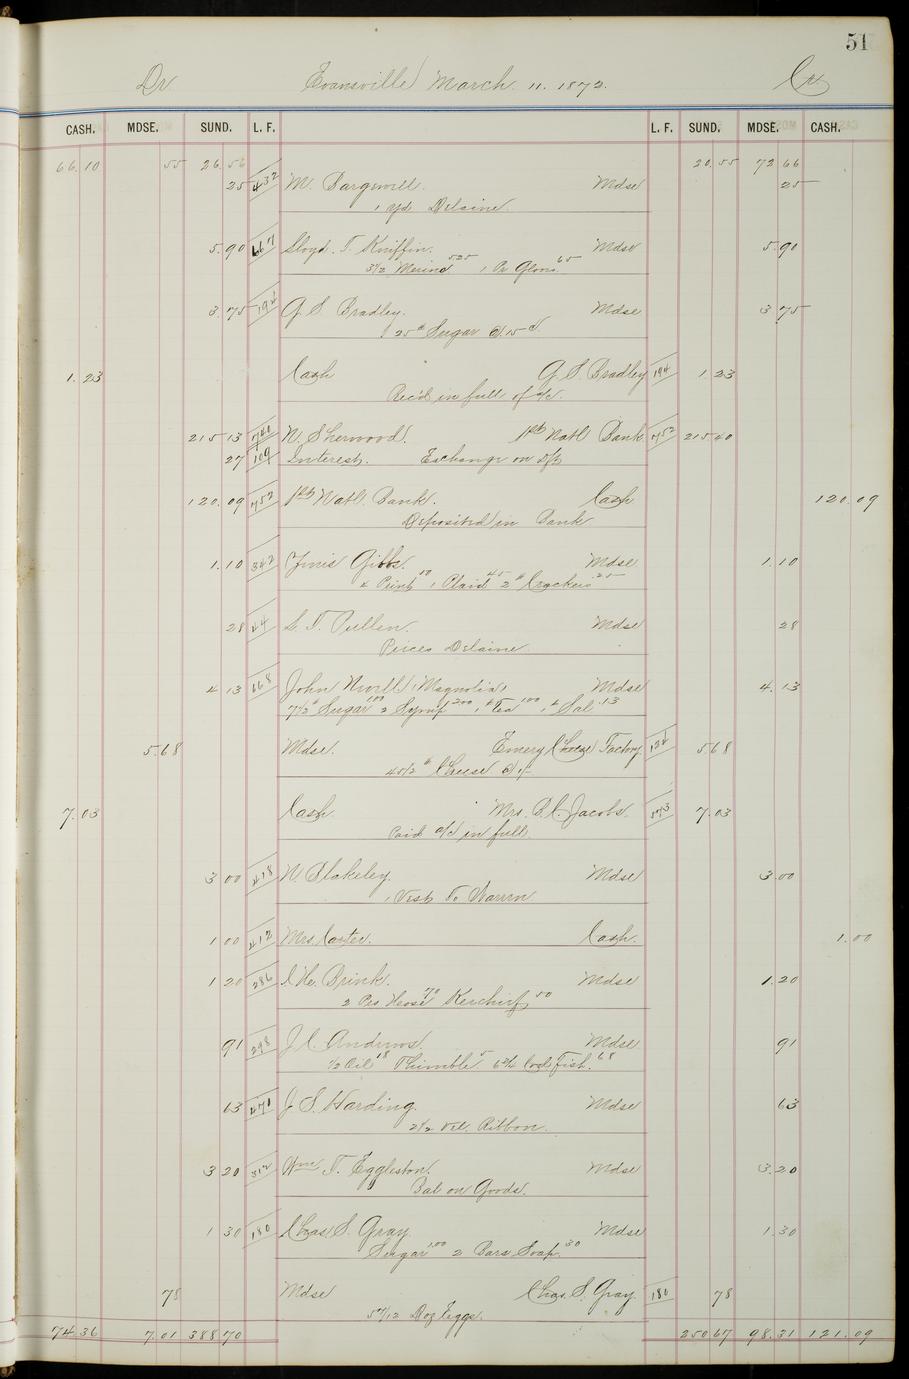 51
Dr Evansville March 11. 1872. Cr
CASH. MDSE. SUND. L. F. L. F. SUND. MDSE. CASH.
66.10 55 26.56 20.55 72 66
25 432 M. Bargewell. Mdse 25
1 yd Delaine.
5.90 667 Lloyd. T. Kniffin. Mdse 5.90
3 1/2 Merino 525 1 Pr Gloves 65
3.75 194 G S Bradley. Mdse 3 75
25# Sugar @ 15 c
1.23 Cash G. S. Bradley 194 1 23
Rec'd in full of a/c.
215 13 740 N. Sherwood. 1st Natl Bank 752 215 40
27 109 Interest. Exchange on Dft
120.09 752 1st Natl. Bank. Cash 120.09
Deposited in Bank
1.10 342 Gibbs. Mdse 1.10
4 Print 40 1 Plaid 45 2# Crackers 25
28 44 L. T. Pullen. Mdse 28
Pieces Delaine
4 13 668 John Nevill (Magnolia) Mdse 4.13
7 1/2# Sugar 100 2 Syrup 200 1# Tea 100 1# Sal .13
5.68 Mdse. Emery Cheese Factory 124 5.68
45 1/2# Cheese @ 1/-
7.03 Cash Mrs. B. C. Jacobs. 573 7.03
Paid a/c in full
3 00 418 N. Blakeley. Mdse 3.00
1 Vest To Warren
1 00 412 Mrs. Carter. Cash. 1.00
1 20 286 C. He. Brink. Mdse 1.20
2 Prs Hose 70 Kerchief 50
91 298 J. C. Andrews Mdse 91
1/2 Oil 18 Thimble 5 6 3/4 Cod Fish. 68
63 471 J. S. Harding. Mdse 63
2 1/2 Vel. Ribbon.
3 20 312 Wm T. Eggleston. Mdse 3.20
Bal on Goods.
1 30 180 Chas. S. Gray Mdse 1.30
Sugar 1.00 2 Bars Soap. 30
78 Mdse Chas. S. Gray 180 78
5 7/12 Doz Eggs.
74.36 7.01 388 70 250 67 98.31 121.09